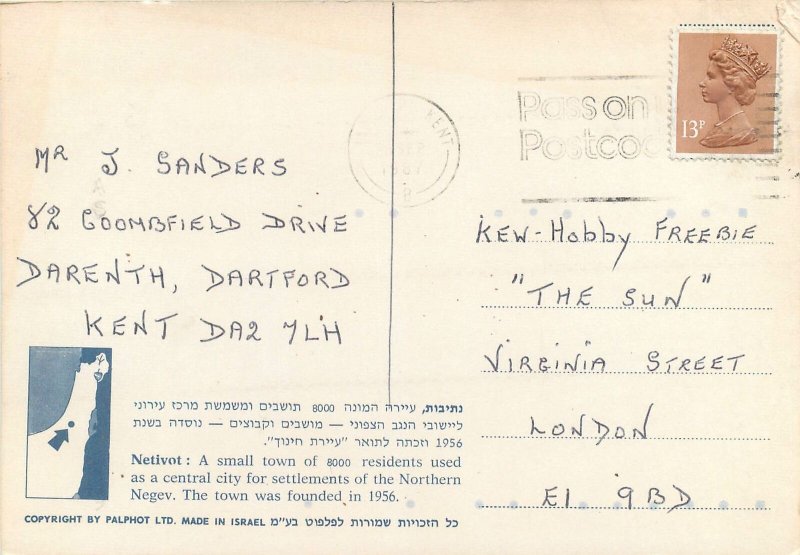 KENT
1987
Pass on
Postcod
13P
MR J. SANDERS
82 COOMBFIELD DRIVE
DARENTH, DARTFORD
KENT DA2 7LH
KEW-Hobby FREEBIE
"THE SUN"
VIRGINIA STREET
LONDON
E1 9BD
נתיבות, עיירה המונה 8000 תושבים ומשמשת מרכז עירוני
ליישובי הנגב הצפוני — מושבים וקבוצים — נוסדה בשנת
1956 וזכתה לתואר "עיירת חינוך".
Netivot: A small town of 8000 residents used
as a central city for settlements of the Northern
Negev. The town was founded in 1956.
COPYRIGHT BY PALPHOT LTD. MADE IN ISRAEL כל הזכויות שמורות לפלפוט בע"מ